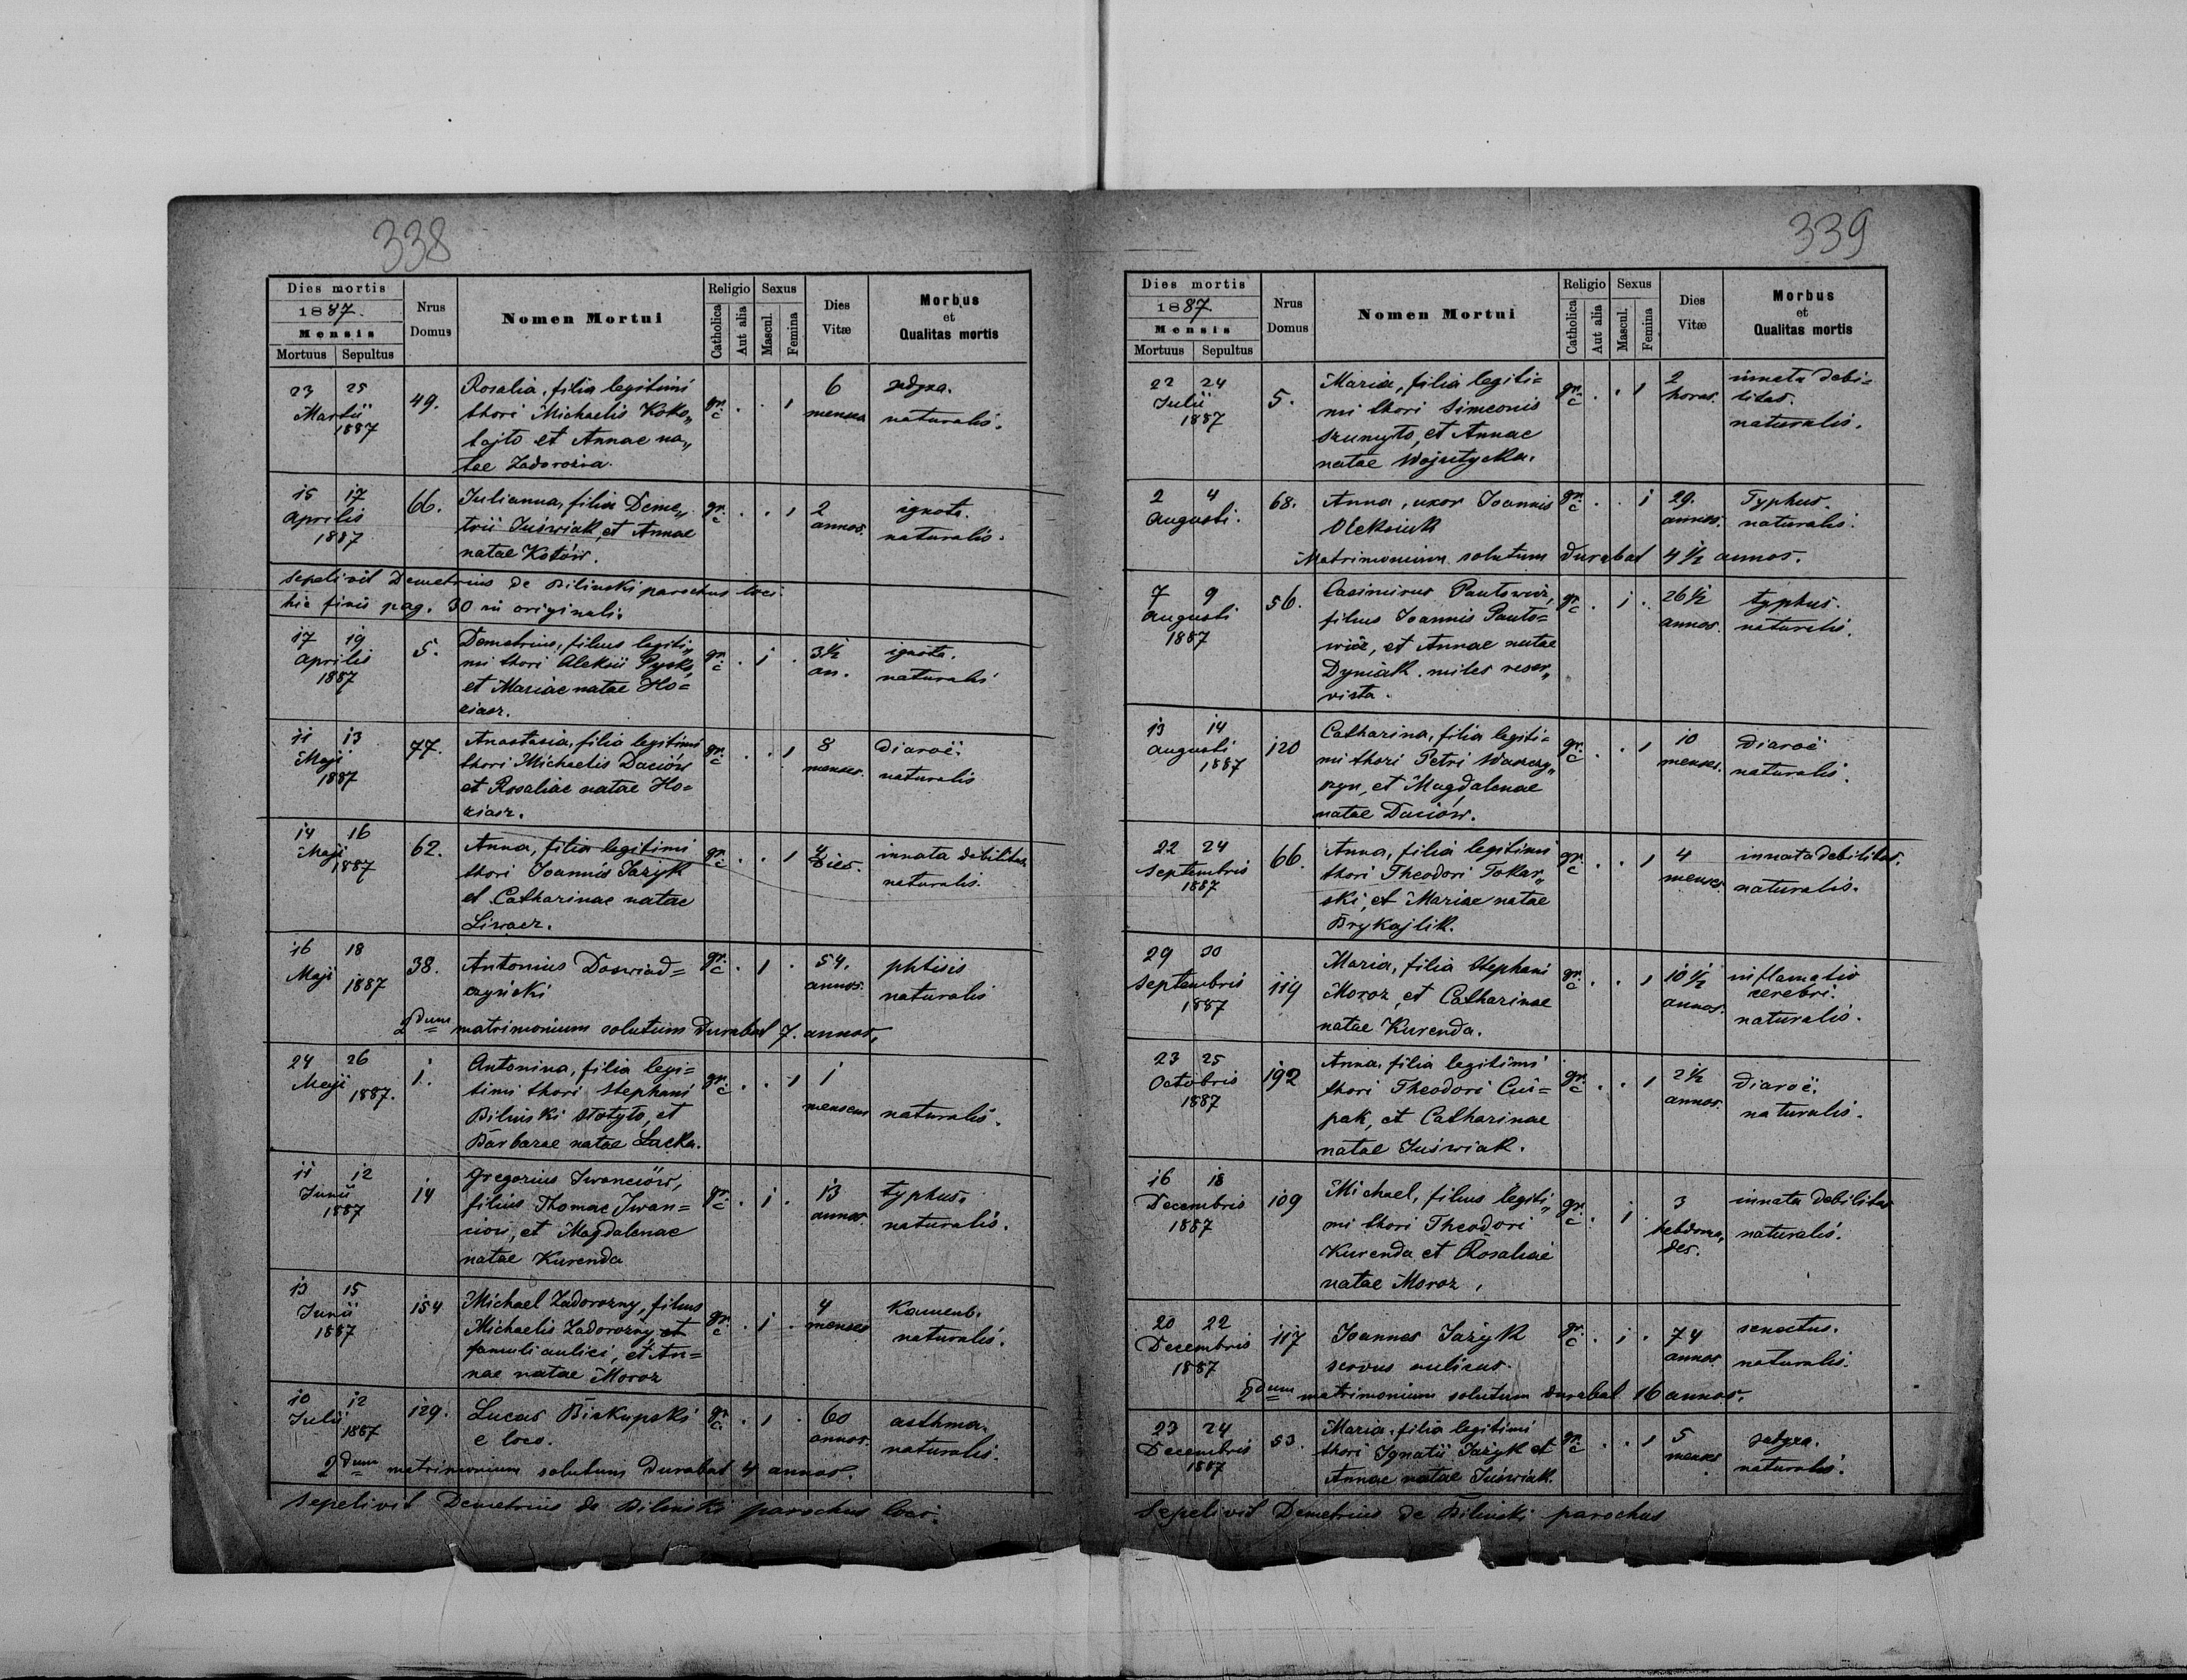 338
Dies mortis
1887.
Mensis
Mortuus Sepultus
Nrus Domus
Nomen Mortui
Religio
Catholica Aut alia
Sexus
Mascul. Femina
Dies Vitæ
Morbus et Qualitas mortis
23 25 49. Rosalia, filia legitimi gr. c . . 1 6
Martii thori Michaelis Koko„ menses naturalis.
1887 łajto et Annae na„
tae Zadorożna.
15 17 66. Julianna, filia Deme„ gr. c . . 1 2 ignota.
Aprilis trii Juświak, et Annae annos. naturalis.
1887 natae Kotów.
Sepelivit Demetrius de Bilinski parochus loci.
hic finis pag. 30 in originali.
17 19 5. Demetrius, filius legiti„ gr. c . 1 . 3½ ignota.
Aprilis mi thori Alexii an. naturalis
1887 et Mariae natae Ho=
ciacz.
11 13 77. Anastasia, filia legitimi gr. c . . 1 8 diaroë.
Maji thori Michaelis Daciów menses. naturalis
1887 et Rosaliae natae Ho=
ciacz.
14 16 62. Anna, filia legitimi gr. c . . 1 4 innata debilitas
Maji thori Joannis Jażyk dies. naturalis.
1887 et Catharinae natae
Liwacz.
16 18 38. Antonius Doswiad= gr. c . 1 . 54. phtisis
Maji 1887 czyński annos. naturalis
2dum matrimonium solutum durabat 7. annos.
24 26 1. Antonina, filia legi= gr. c . . 1 1
Maji 1887. timi thori Stephani mensem naturalis.
Bilinski et
Barbarae natae Łacka.
11 12 14 Gregorius Iwanciów, gr. c . 1 . 13 typhus.
Junii filius Thomae Iwan= annos. naturalis.
1887 ciów, et Magdalenae
natae Kurenda
13 15 154 Michael Zadorożny, filius gr. c . 1 . 4
Junii Michaelis Zadorożny, et menses naturalis.
1887 famuli aulici, et An=
nae natae Moroz
10 12 129. Lucas Biskupski gr. c . 1 . 60 asthma.
Julii 1887 e loco. annos. naturalis.
2dum matrimonium solutum durabat 4 annos.
Sepelivit Demetrius de Bilinski parochus loci.
339
Dies mortis
1887
Mensis
Mortuus Sepultus
Nrus Domus
Nomen Mortui
Religio
Catholica Aut alia
Sexus
Mascul. Femina
Dies Vitæ
Morbus et Qualitas mortis
22 24 5. Maria, filia legiti= gr. c . . 1 2 innata debi=
Julii mi thori Simeonis horas. litas.
1887 Szumyło, et Annae naturalis.
natae Wojutycka.
2 4 68. Anna, uxor Joannis gr. c . . 1 29. Typhus.
Augusti. Oleksiuk annos. naturalis.
Matrimonium solutum durabat 4½ annos.
7 9 56. Casimirus Pautowicz, gr. c . 1 . 26½ typhus.
Augusti filius Joannis Pauto= annos. naturalis.
1887 wicz, et Annae natae
Dyniak. miles reser„
vista.
13 14 120 Catharina, filia legiti= gr. c . . 1 10 diaroë
Augusti mi thori Petri menses. naturalis.
1887 et Magdalenae
natae Daciów.
22 24 66. Anna, filia legitimi gr. c . . 1 4 innata debilitas.
Septembris thori Theodori Tokar„ menses. naturalis.
1887 ski, et Mariae natae
Brykajlik.
29 30 119 Maria, filia Stephani gr. c . . 1 10½ inflamatio
Septembris Moroz, et Catharinae annos. cerebri.
1887 natae Kurenda. naturalis.
23 25 192 Anna, filia legitimi gr. c . . 1 2½ diaroë.
Octobris thori Theodori Ciu= annos. naturalis.
1887 pak, et Catharinae
natae Juświak.
16 18 109 Michael, filius legiti„ gr. c . 1 3 innata debilitas
Decembris mi thori Theodori hebdoma„ naturalis.
1887 Kurenda et Rosaliae des.
natae Moroz.
20 22 117 Joannes Jażyk gr. c . 1 . 74 senectus.
Decembris servus aulicus. annos. naturalis.
1887
2dum matrimonium solutum durabat 16 annos.
23 24 53. Maria, filia legitimi gr. c . . 1 5
Decembris thori Ignatii Jażyk et menses naturalis.
1887 Annae natae Juświak.
Sepelivit Demetrius de Bilinski parochus